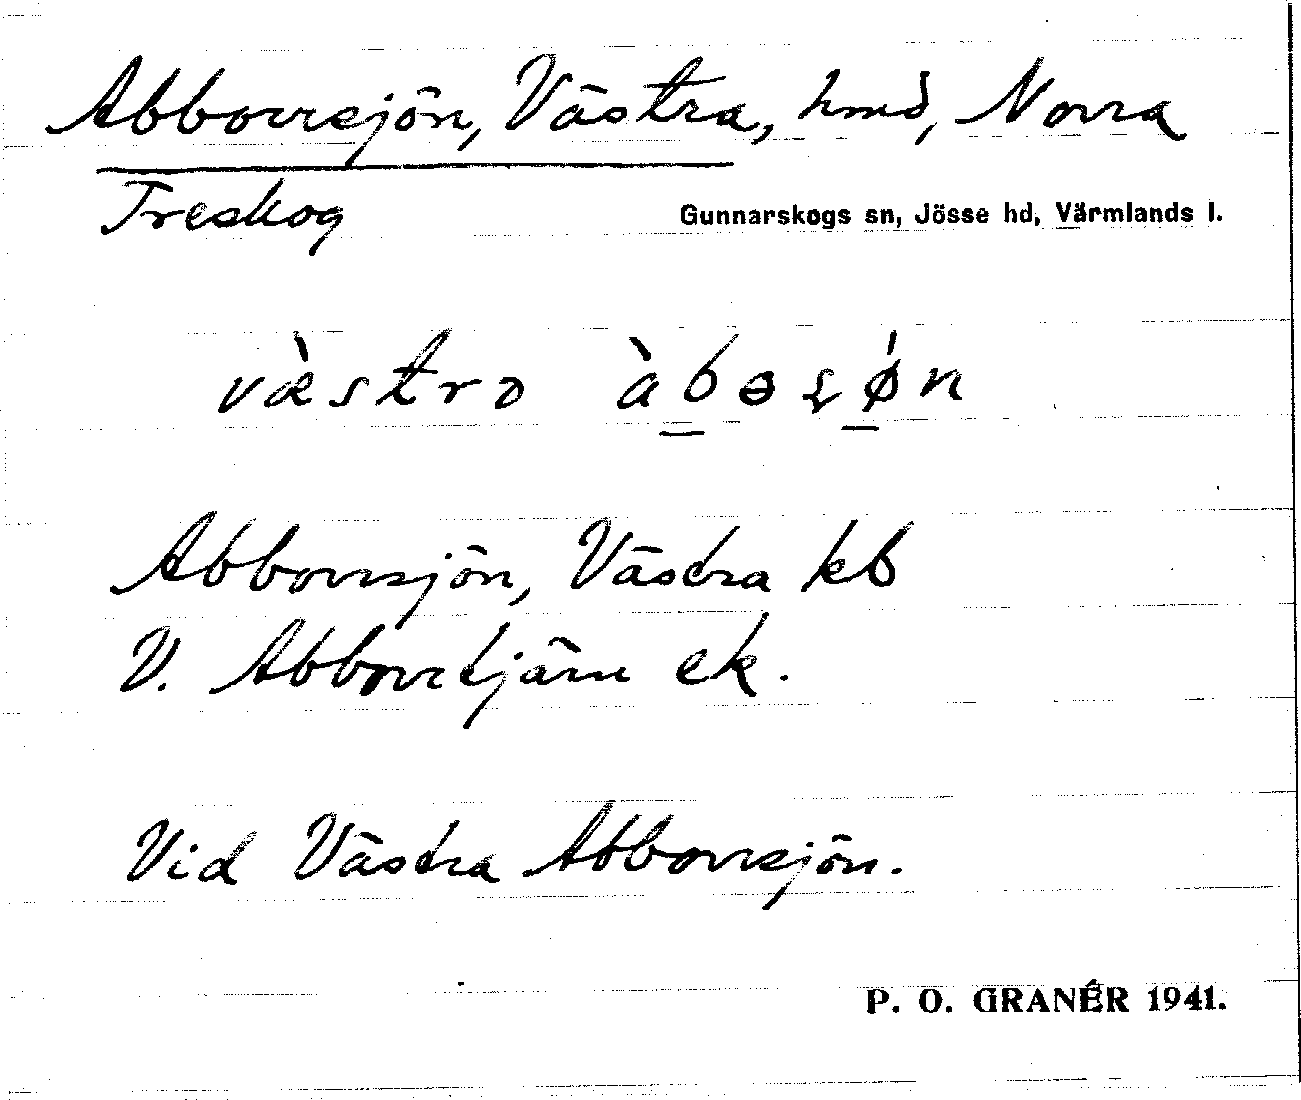 Abborrsjön, Västra, hmd, Norra
Treskog
Gunnarskogs sn, Jösse hd, Värmlands l.
væ̀stro àbəʂǿn
Abborrsjön, Västra kb
V. Abborrtjärn ek.
Vid Västra Abborrsjön.
P. O. GRANÉR 1941.